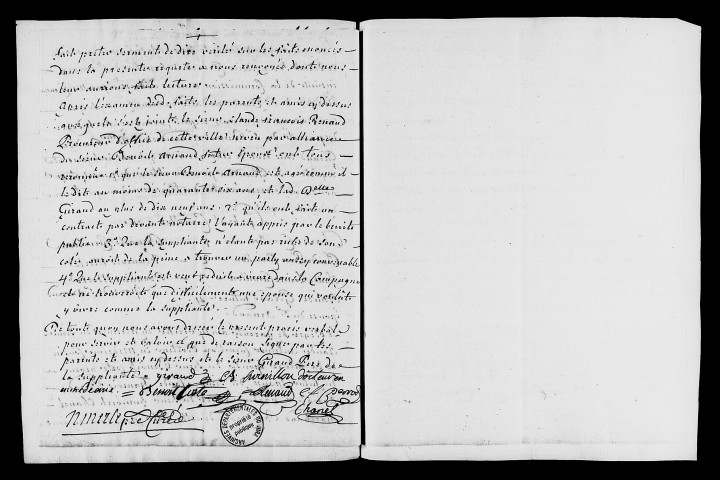 fait prêter serment de dire verité sur les faits enoncés
dans la presente requête a nous renvoyée dont nous
leur aurions fait lecture
Après l'examen desd. faits, les parents et amis cy dessus
auxquels s'est joint le sieur Claude françois Renaud
Procureur d'office de cette ville neveu par alliance
du sieur Benoit Arnaud futur Epoux ont tous
reconnu 1° que le sieur Benoit Arnaud est agé comme il
le dit au moins de quarante six ans et lad. Delle
Giraud au plus de dix neuf ans. 2° qu'ils ont fait un
contract par devant notaire l'ayant appris par le bruit
public 3° Que la suppliante n'étant pas riche de son
coté auroit de la peine a trouver un party aussy convenable
4° Que le suppliant est veuf reduit a vivre dans la Campagne
et ne trouveroit que difficilement une epouse qui voulut
y vivre comme la suppliante.
De tout quoy nous avons dressé le present procès verbal
pour servir et valoir ce que de raison signé par les
parents et amis cy dessus et le sieur Giraud Père de
la suppliante = giraud docteur en
medecine = Benoit Renaud
Chanel
ARCHIVES DÉPARTEMENTALES DU JURA
propriété publique